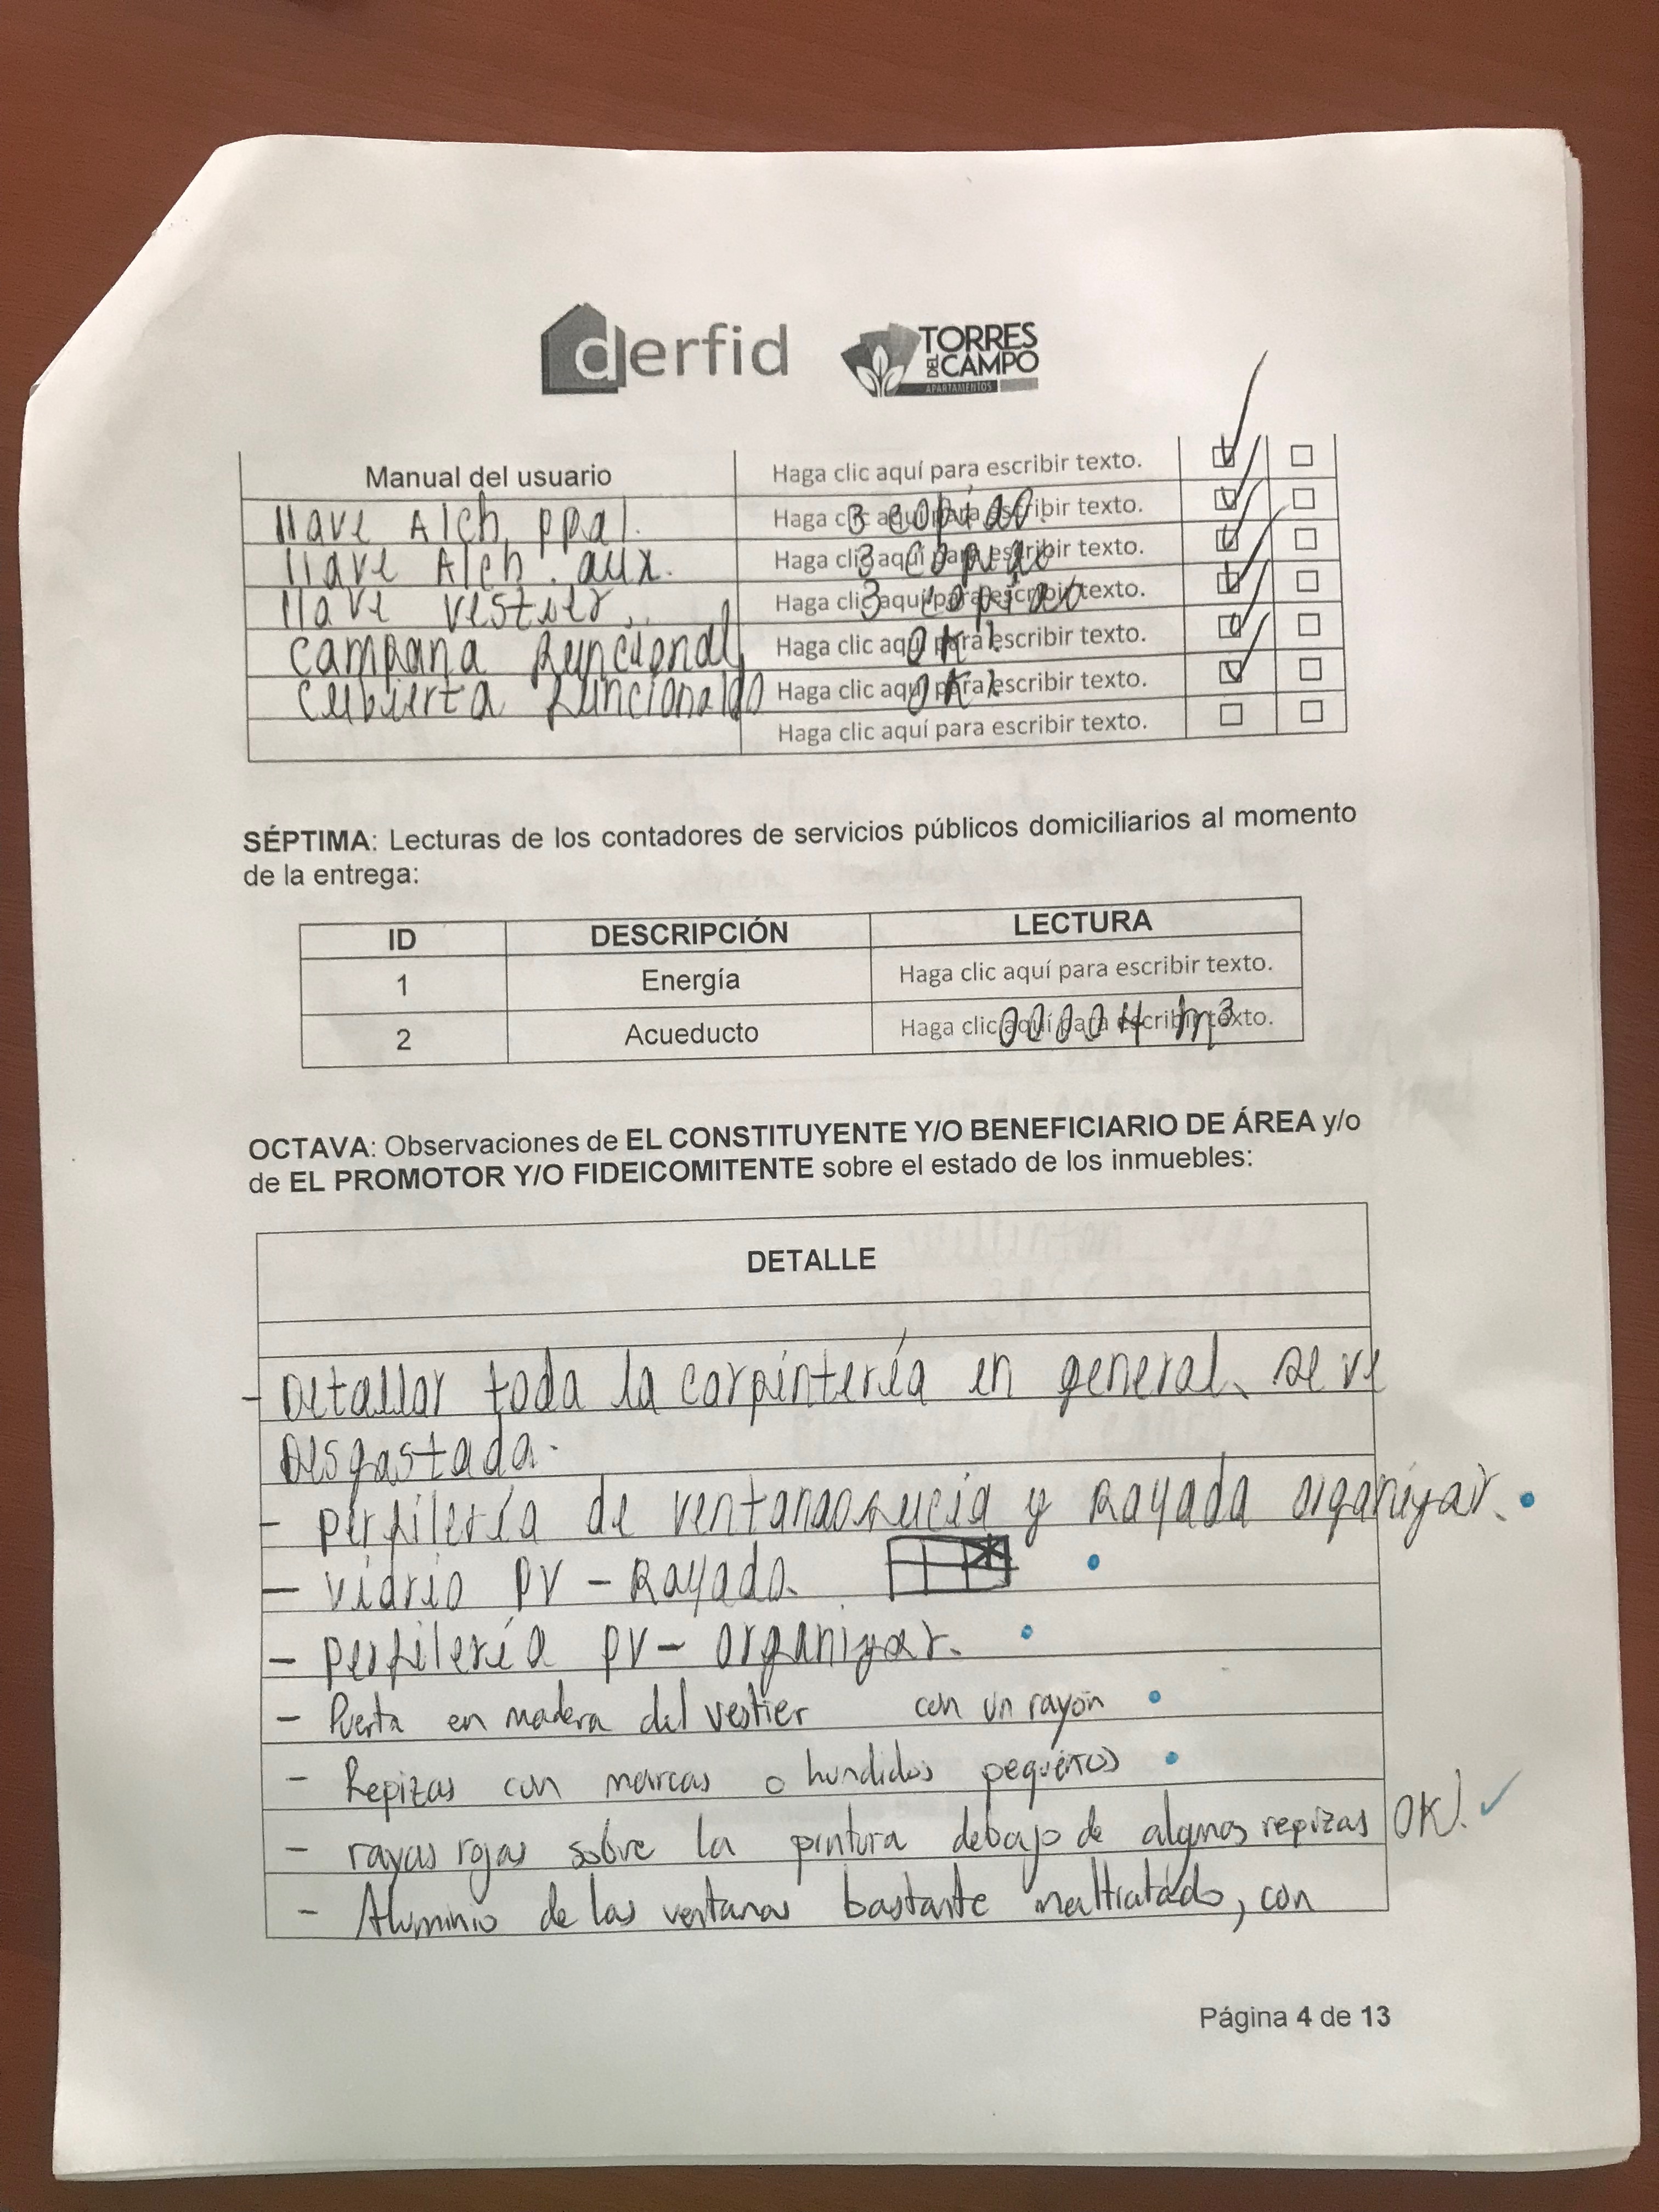 derfid
TORRES
DEL CAMPO
APARTAMENTOS
Manual del usuario Haga clic aquí para escribir texto.
llave Alcb. ppal. Haga clic aquí para escribir texto. 3 copias.
llave Alcb. aux. Haga clic aquí para escribir texto. 3 copias
llave vestier. Haga clic aquí para escribir texto. 3 copias
Campana funcional Haga clic aquí para escribir texto. OK!
Cubierta funcionando Haga clic aquí para escribir texto. OK!
Haga clic aquí para escribir texto.
SÉPTIMA: Lecturas de los contadores de servicios públicos domiciliarios al momento
de la entrega:
ID DESCRIPCIÓN LECTURA
1 Energía Haga clic aquí para escribir texto.
2 Acueducto Haga clic aquí para escribir texto. 00004 m³
OCTAVA: Observaciones de EL CONSTITUYENTE Y/O BENEFICIARIO DE ÁREA y/o
de EL PROMOTOR Y/O FIDEICOMITENTE sobre el estado de los inmuebles:
DETALLE
- Detallar toda la carpintería en general. se ve
desgastada.
- perfilería de ventanas sucia y rayada organizar.
- vidrio PV - Rayado.
- perfilería PV - organizar.
- Puerta en madera del vestier con un rayón
- Repizas con marcas o hundidos pequeños
- rayas rojas sobre la pintura debajo de algunas repizas OK!
- Aluminio de las ventanas bastante maltratado, con
Página 4 de 13